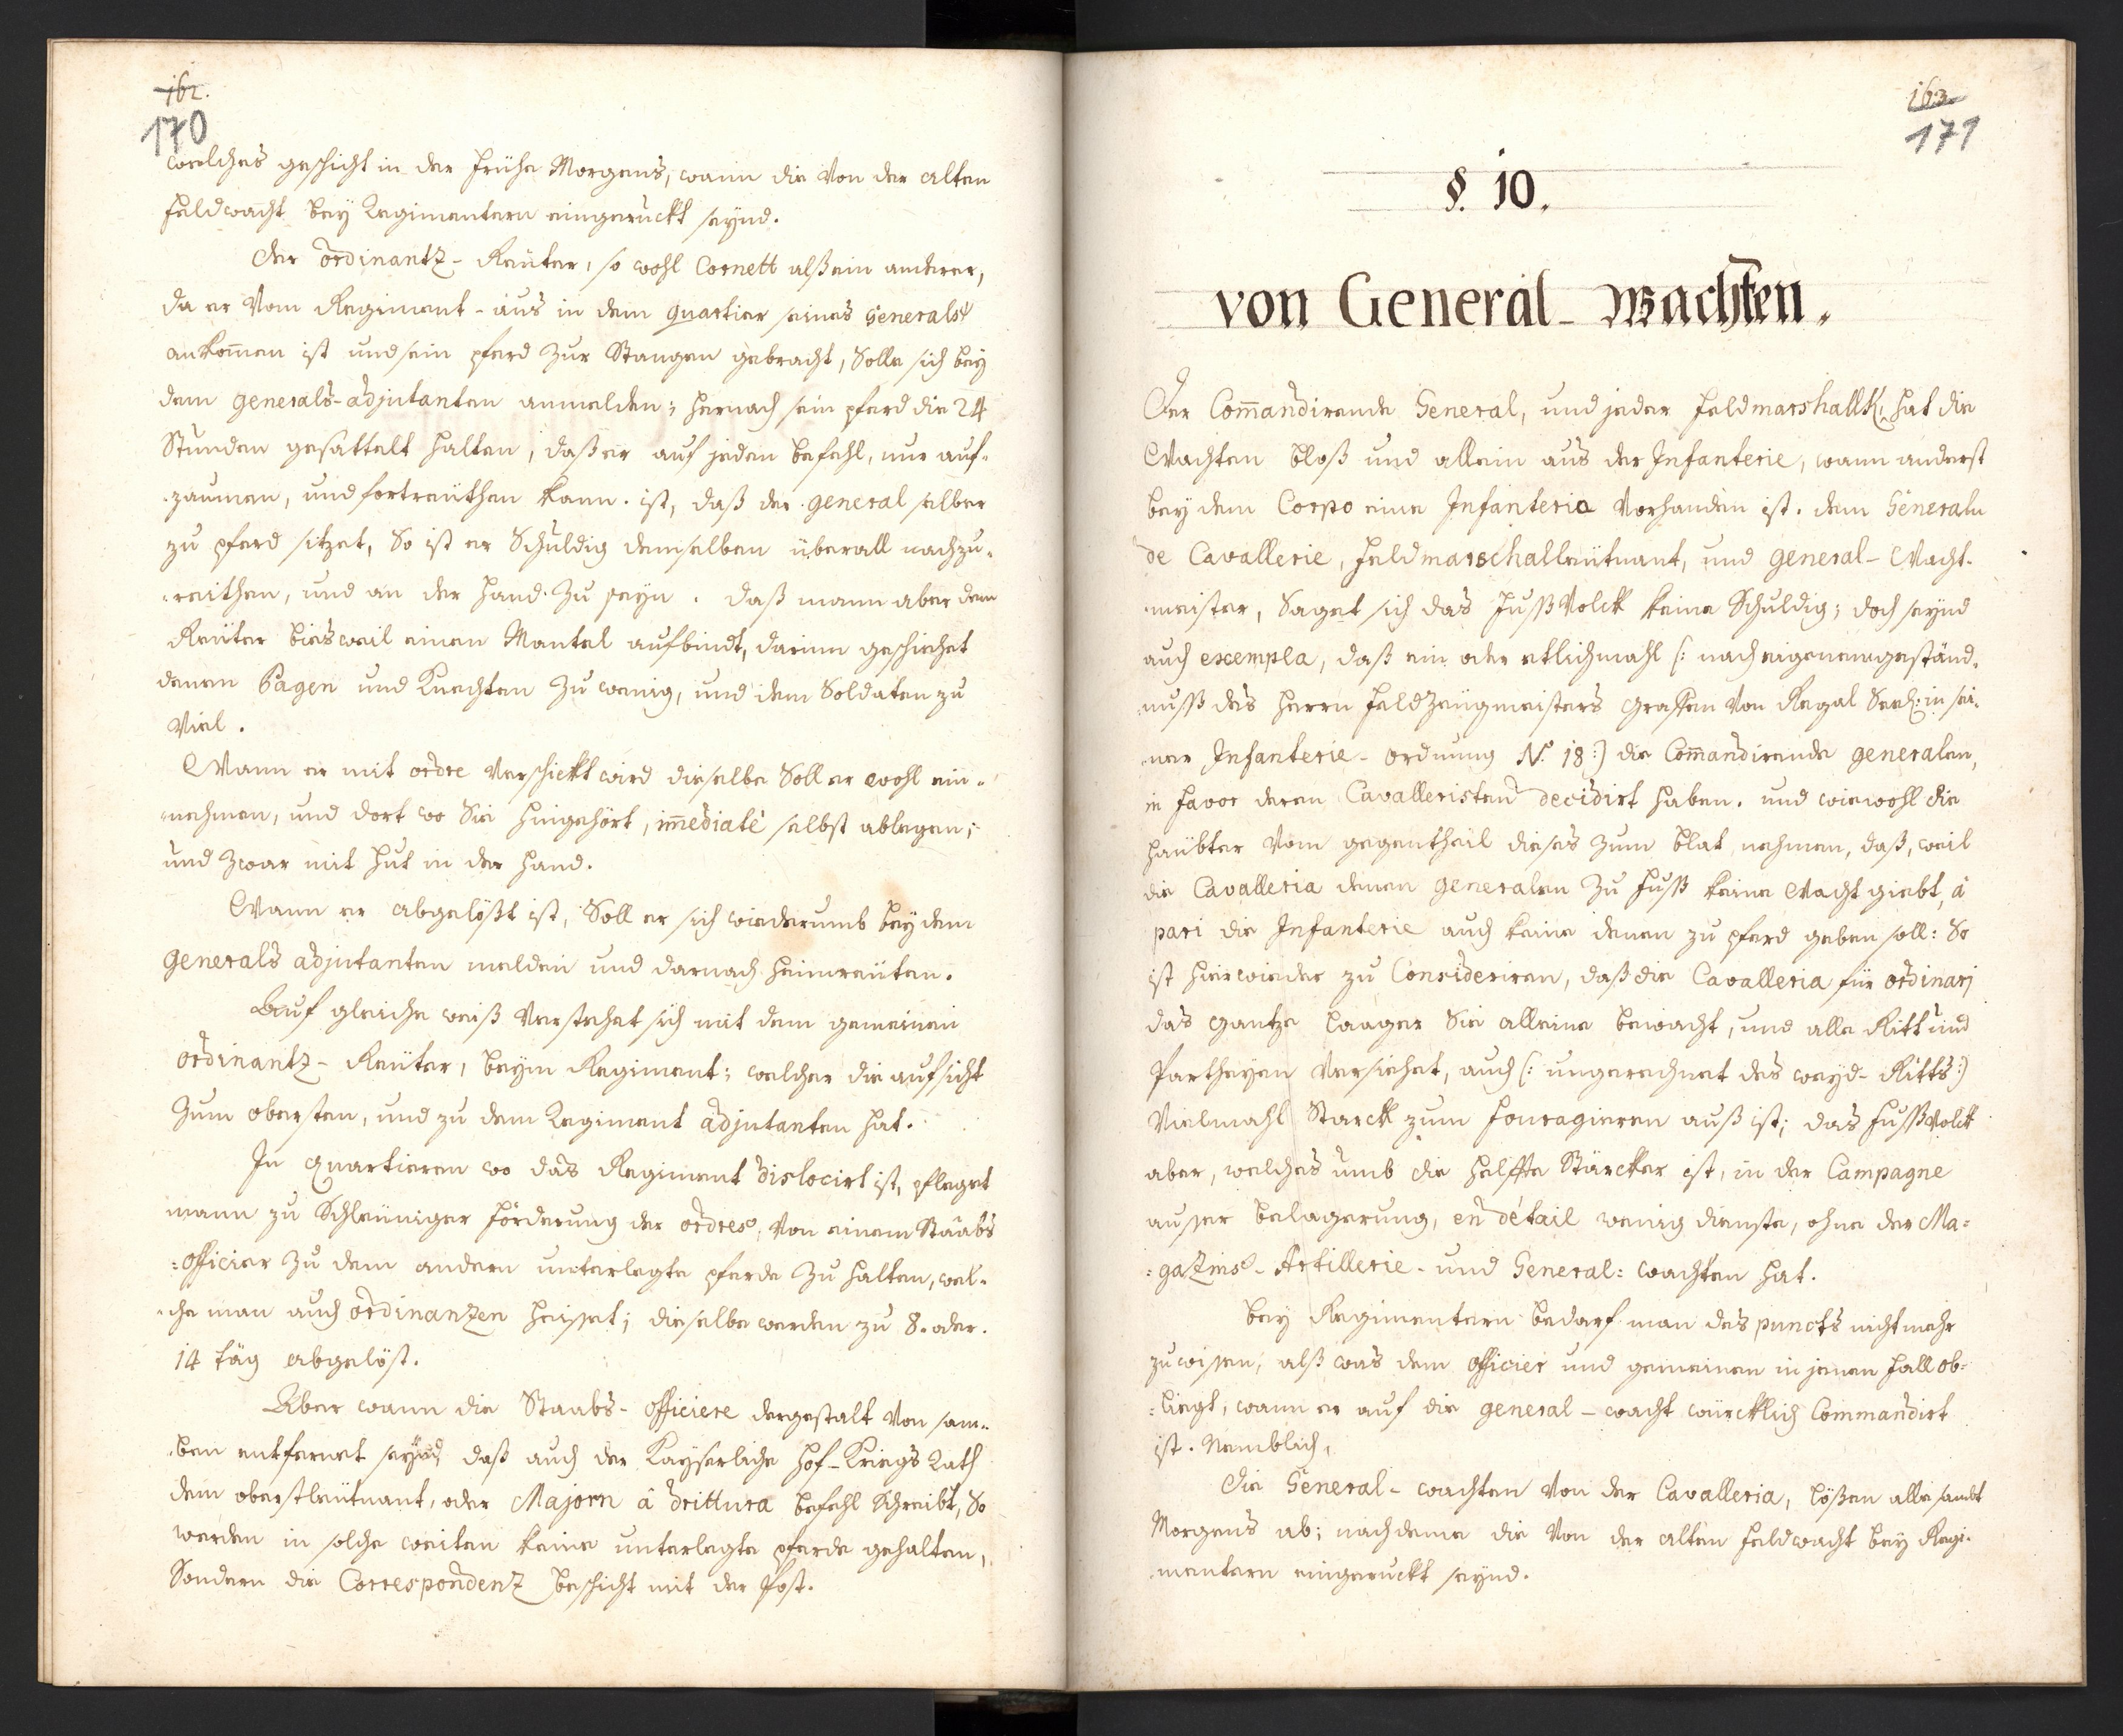 162.
170
welches geschicht in der frühe Morgens, wann die von der alten
feldwacht bey Regimentern eingeruckt seynd.
Der ordinantz-Reuter, so wohl Cornett alß ein anderer,
da er vom Regiment-aus in dem quartier seines Generals
ankom̄en ist und sein pferd zur Stangen gebracht, Solle sich bey
dem generals-adjutanten anmelden; hernach sein pferd die 24
Stunden gesattelt halten, daß er auf jeden befehl, nur auf-
zaumen, und fortreuthen kann. ist, daß der general selber
zu pferd sitzet, So ist er Schuldig demselben überall nachzu-
reithen, und an der hand zu seyn. daß mann aber dem
Reuter bisweil einen Mantel aufbindt, darinn geschiehet
denen Pagen und Knechten zu wenig, und dem Soldaten zu
viel.
Wann er mit ordre verschickt wird dieselbe Soll er wohl ein-
nehmen, und dort wo Sie hingehört, im̄ediatè selbst ablegen;
und zwar mit hut in der hand.
Wann er abgelößt ist, Soll er sich wiederumb bey dem
generals adjutanten melden und darnach heimreuten.
Auf gleiche weiß verstehet sich mit dem gemeinen
ordinantz-Reuter, beym Regiment; welcher die aufsicht
zum obersten, und zu dem Regiment adjutanten hat.
In quartieren wo das Regiment dislocirt ist, pfleget
mann zu Schleuniger förderung der ordres, von einem Staabs
=officier zu dem andern unterlegte pferde zu halten, wel-
che man auch ordinanzen heisset; dieselbe werden zu 8. oder
14 täg abgelöst.
Aber wann die Staabs-officiere dergestalt von sam-
ben entfernet seynd, daß auch der Kayserliche Hof-Kriegs Rath
dem oberstleutnant, oder Majorn â drittura befehl Schreibt, So
werden in solche weiten keine unterlegte pferde gehalten,
Sondern die Correspondenz beschicht mit der Post.
163
171
§. 10.
von General-Wachten.
Der Com̄andirende General, und jeder feldmarshallk, hat die
Wachten bloß und allein aus der Infanterie, wann anderst
bey dem Corpo eine Infanteria vorhanden ist. dem Generaln
de Cavallerie, feldmarschalleutnant, und general-Wacht-
meister, Saget sich das fußvolck keine Schuldig; doch seynd
auch exempla, daß ein oder etlichmahl (: nach eigenem geständ-
nuß des herrn feldzeugmeisters graffen von Regal Seel: in sei-
ner Infanterie-ordnung N.º 18:) die Com̄andirende generalen,
in favor deren Cavalleristen decidirt haben. und wiewohl die
häubter vom gegentheil dieses zum blat nehmen, daß, weil
die Cavalleria denen generalen zu fuß keine Wacht giebt, â
pari die Infanterie auch keine denen zu pferd geben soll: So
ist hierwieder zu Consideriren, daß die Cavalleria für ordinarj
das gantze laager Sie alleine bewacht, und alle Ritt und
Partheyen versiehet, auch (: ungerechnet des weyd-Ritts:)
Vielmahl Starck zum fouragieren auß ist; das fußvolck
aber, welches umb die helffte Stärcker ist, in der Campagne
ausser belagerung, en détail wenig dienste, ohne der Ma=
=gazins-Artillerie-und General=wachten hat.
bey Regimentern bedarf man des puncts nicht mehr
zu wissen, alß was dem officier und gemeinen in jenen fall ob=
=liegt, wann er auf die general-wacht würcklich Commandirt
ist. Nemblich,
Die General-wachten von der Cavalleria, lößen alle sambt
Morgens ab; nachdeme die von der alten feldwacht bey Regi-
mentern eingeruckt seynd.